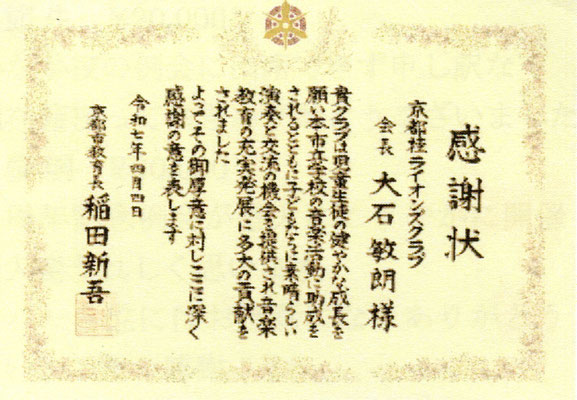 感謝状
京都桂ライオンズクラブ
会長 大石敏朗様
貴クラブは児童生徒の健やかな成長を
願い本市立学校の音楽活動に助成を
されるとともに子どもたちに素晴らしい
演奏と交流の機会を提供され音楽
教育の充実発展に多大の貢献を
されました
よってその御厚意に対しここに深く
感謝の意を表します
令和七年四月四日
京都市教育長 稲田新吾